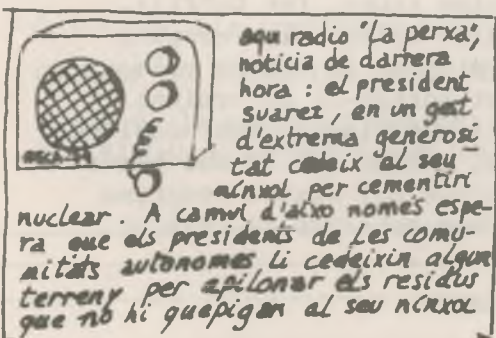 aquí radio "La perxa",
noticia de darrera
hora : el president
suarez, en un gest
d'extrema generosi
tat cedeix el seu
nínxol per cementiri
nuclear. A camvi d'aixo nomès espe-
ra que els presidents de les comu-
nitats autonomes li cedeixin algun
terreny per apilonar els residus
que no hi quepigan al seu nínxol